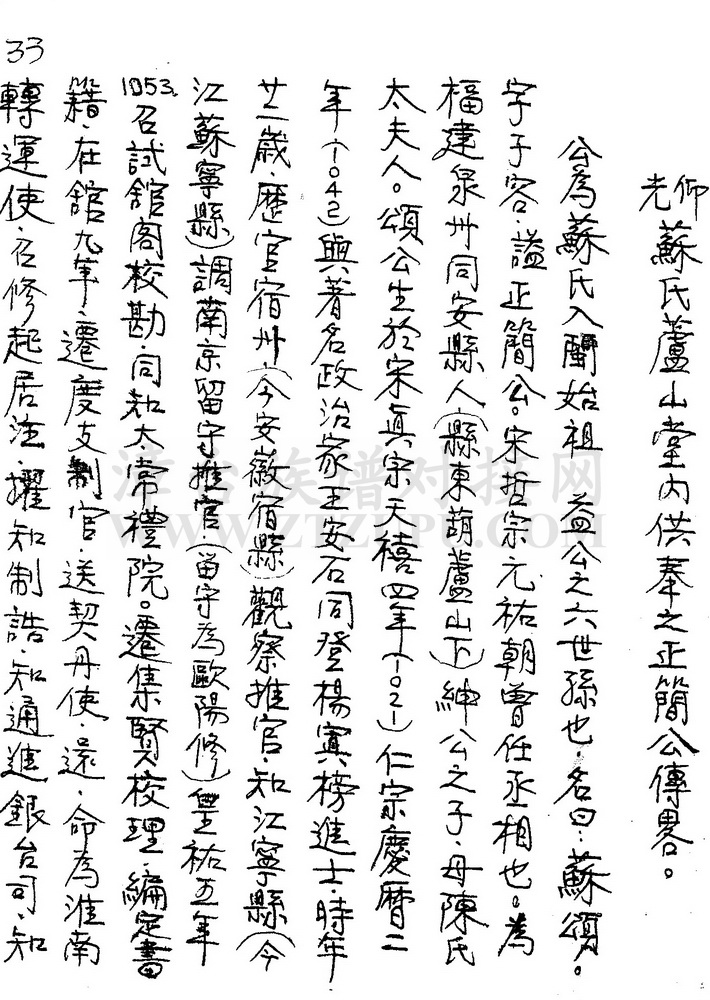 33
仰光蘇氏蘆山堂內供奉之正簡公傳畧。
公為蘇氏入閩始祖 益公之六世孫也．名曰：蘇頌。
字子容．謚正簡公。宋哲宗元祐朝曾任丞相也。為
福建泉州同安縣人（縣東葫蘆山下）紳公之子．母陳氏
太夫人。頌公生於宋真宗天禧四年（一〇二一）仁宗慶曆二
年（一〇四二）與著名政治家王安石同登楊寘榜進士．時年
廿二歲．歷官宿州（今安徽宿縣）觀察推官．知江寧縣（今
江蘇寧縣）調南京留守推官（留守為歐陽修）皇祐五年
1053．召試館閣校勘．同知太常禮院。遷集賢校理．編定書
籍．在館九年．遷度支判官．送契丹使．還．命為淮南
轉運使．召修起居注．擢知制誥．知通進銀台司．知
漳台族谱对接网
WWW.ZTZUPU.COM